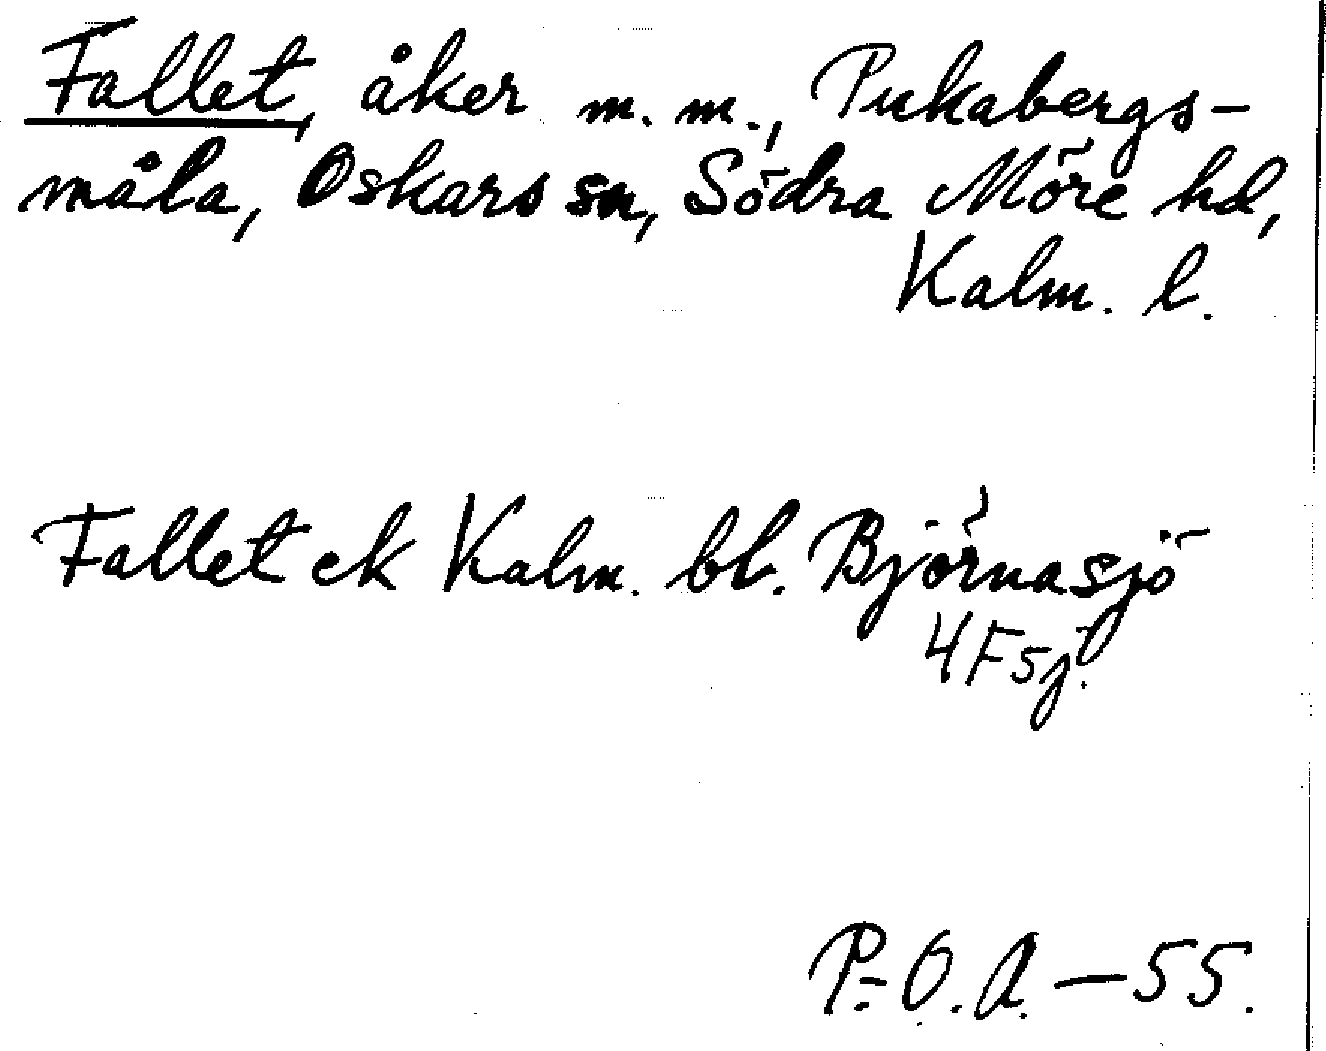 Fallet, åker m. m., Pukabergs-
måla, Oskars sn, Södra Möre hd,
Kalm. l.
Fallet ek Kalm. bl. Björnasjö
4F5j.
P.-O. A. — 55.